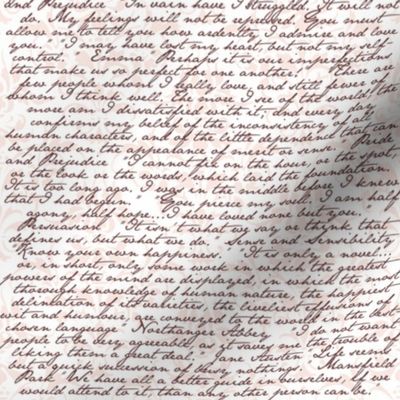 and Prejudice "In vain have I struggled, it will not
do. My feelings will not be repressed. You must
allow me to tell you how ardently I admire and love
you." "I may have lost my heart, but not my self-
control." Emma "Perhaps it is our imperfections
that make us so perfect for one another!" "There are
few people whom I really love, and still fewer of
whom I think well. The more I see of the world, the
more am I dissatisfied with it; and every day
confirms my belief of the inconsistency of all
human characters, and of the little dependence that can
be placed on the appearance of merit or sense." Pride
and Prejudice "I cannot fix on the hour, or the spot,
or the look or the words, which laid the foundation.
It is too long ago. I was in the middle before I knew
that I had begun." "You pierce my soul. I am half
agony, half hope...I have loved none but you."
Persuasion "It isn't what we say or think that
defines us, but what we do." Sense and Sensibility
"Know your own happiness." "It is only a novel...
or, in short, only some work in which the greatest
powers of the mind are displayed, in which the most
thorough knowledge of human nature, the happiest
delineation of its varieties, the liveliest effusions of
wit and humour, are conveyed to the world in the best-
chosen language" Northanger Abbey "I do not want
people to be very agreeable, as it saves me the trouble of
liking them a great deal." Jane Austen "Life seems
but a quick succession of busy nothings." Mansfield
Park "We have all a better guide in ourselves, if we
would attend to it, than any other person can be.